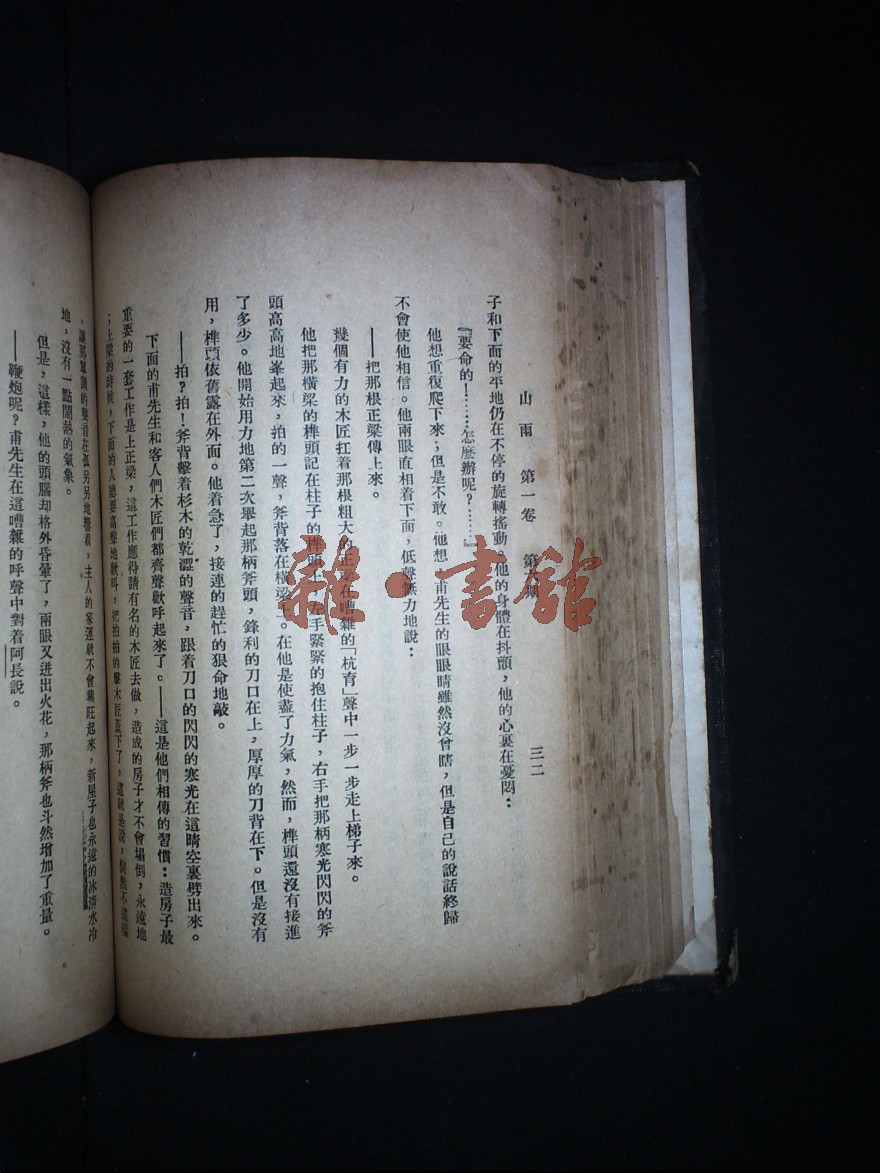 山雨 第一卷 第六期 三二
子和下面的平地仍在不停的旋轉搖動。他的身體在抖顫，他的心裏在憂悶：
『要命的！……怎麽辦呢？……』
他想重復爬下來；但是不敢。他想，甫先生的眼眼睛雖然沒曾瞎，但是自己的說話終歸
不會使他相信。他兩眼直相着下面，低聲無力地說：
——把那根正梁傳上來。
幾個有力的木匠扛着那根粗大的正梁在嘈雜的「杭育」聲中一步一步走上梯子來。
他把那橫梁的榫頭記在柱子的榫頭上，左手緊緊的抱住柱子，右手把那柄寒光閃閃的斧
頭高高地峯起來，拍的一聲，斧背落在橫梁上。在他是使盡了力氣，然而，榫頭還沒有接進
了多少。他開始用力地第二次舉起那柄斧頭，鋒利的刀口在上，厚厚的刀背在下。但是沒有
用，榫頭依舊露在外面。他着急了，接連的趕忙的狠命地敲。
——拍？拍！斧背擊着杉木的乾澀的聲音，跟着刀口的閃閃的寒光在這晴空裏劈出來。
下面的甫先生和客人們木匠們都齊聲歡呼起來了。——這是他們相傳的習慣：造房子最
重要的一套工作是上正梁，這工作應得請有名的木匠去做，造成的房子才不會塌倒，永遠地
；上梁的時候，下面的人總要高聲地歡呼，把拍拍的擊木匠蓋下了，這就是說，倘然不這樣
，讓那單調的聲音在孤另另地響着，主人的家運就不會興旺起來，新屋子也永遠的冰淸水冷
地，沒有一點鬧熱的氣象。
但是，這樣，他的頭腦却格外昏暈了，兩眼又迸出火花，那柄斧也斗然增加了重量。
——鞭炮呢？甫先生在這嘈雜的呼聲中對着阿長說。
雜·書館